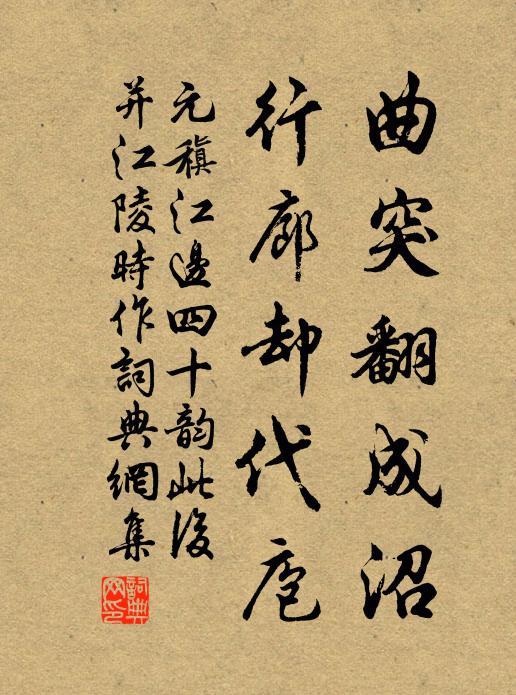 曲突翻成沼
行廊却代庖
元稹江邊四十韵此後
并江陵時作詞典網集
詞典網印